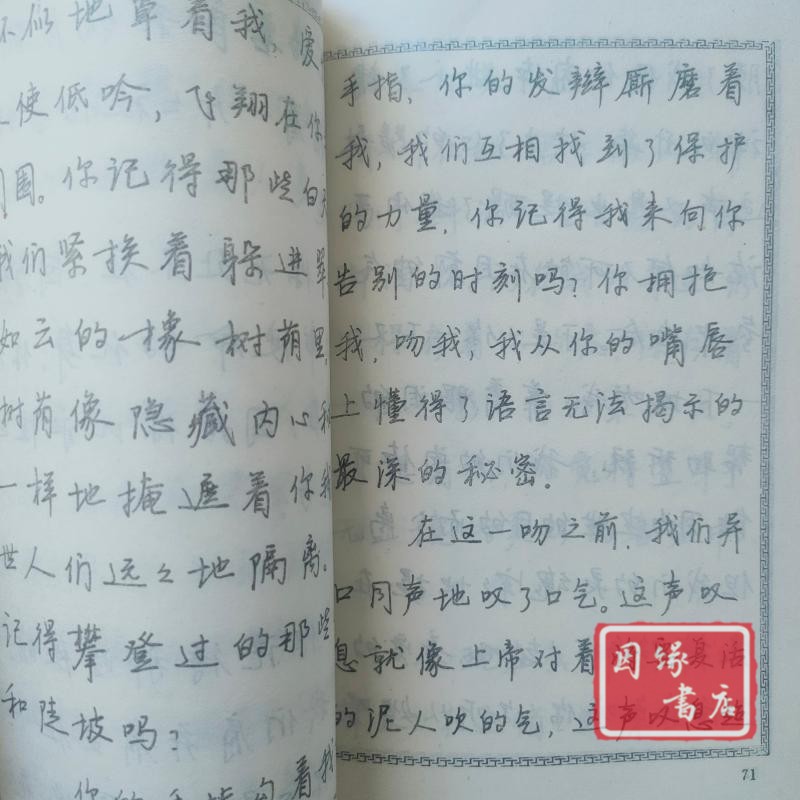 不似地罩着我,爱
使低吟,飞翔在你
周围。你记得那些白天
我们紧挨着躲进翠
如云的橡树荫里,
树荫像隐藏内心秘
一样地掩遮着你我
世人们远々地隔离。
记得攀登过的那些
和陡坡吗?
你的手指向着我
手指,你的发辫厮磨着
我,我们互相找到了保护
的力量,你记得我来向你
告别的时刻吗?你拥抱
我,吻我,我从你的嘴唇
上懂得了语言无法揭示的
最深的秘密。
在这一吻之前,我们异
口同声地叹了口气。这声叹
息就像上帝对着 复活
的泥人吹的气,这声叹息
因缘
书店
71